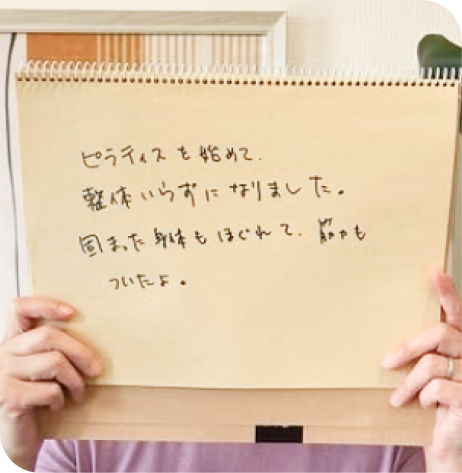 ピラティスを始めて、
整体いらずになりました。
固まった身体もほぐれて、筋力も
ついたよ。